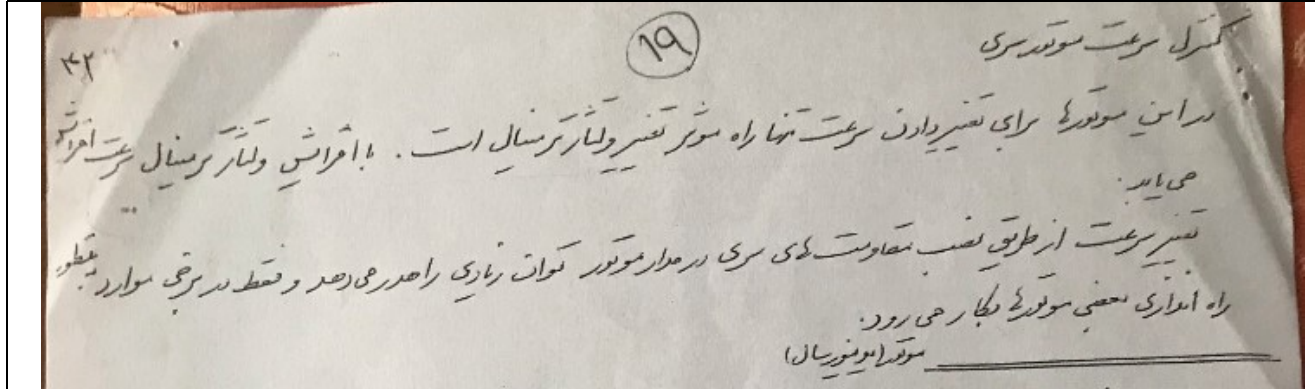 ۱۹
۴۲
کنترل سرعت موتور سری
در این موتورها برای تغییر دادن سرعت تنها راه موثر تغییر ولتاژ ترمینال است. با افزایش ولتاژ ترمینال سرعت افزایش
می یابد.
تغییر سرعت از طریق نصب مقاومت های سری در مدار موتور توان زیادی را هدر می دهد و فقط در برخی موارد بمنظور
راه اندازی بعضی موتورها بکار می رود.
موتور (یونیورسال)